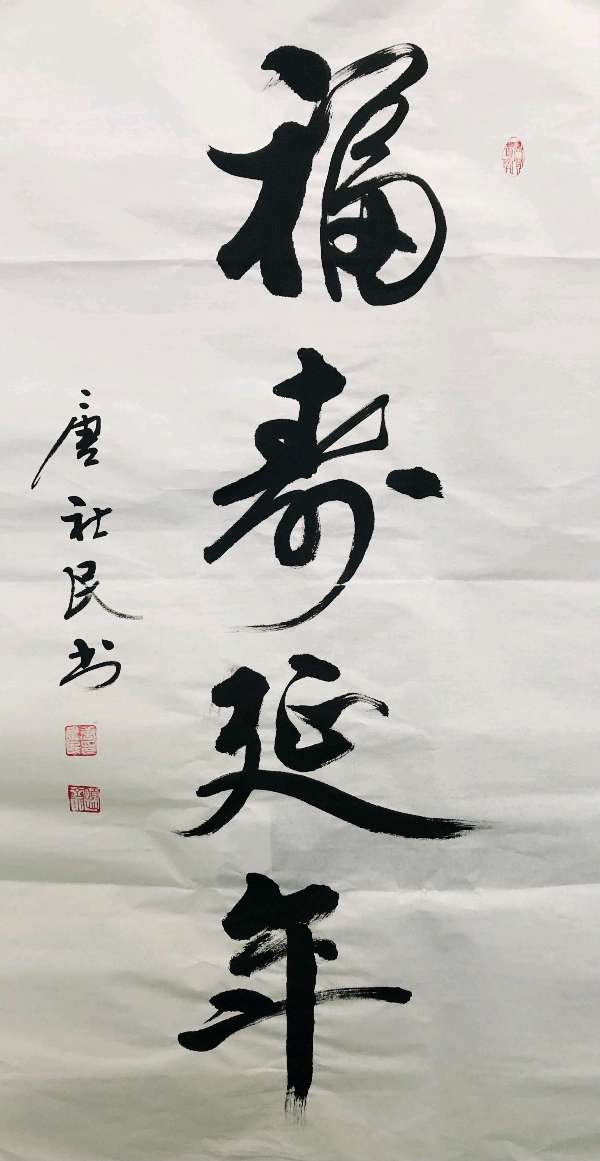 福寿延年
唐社民书